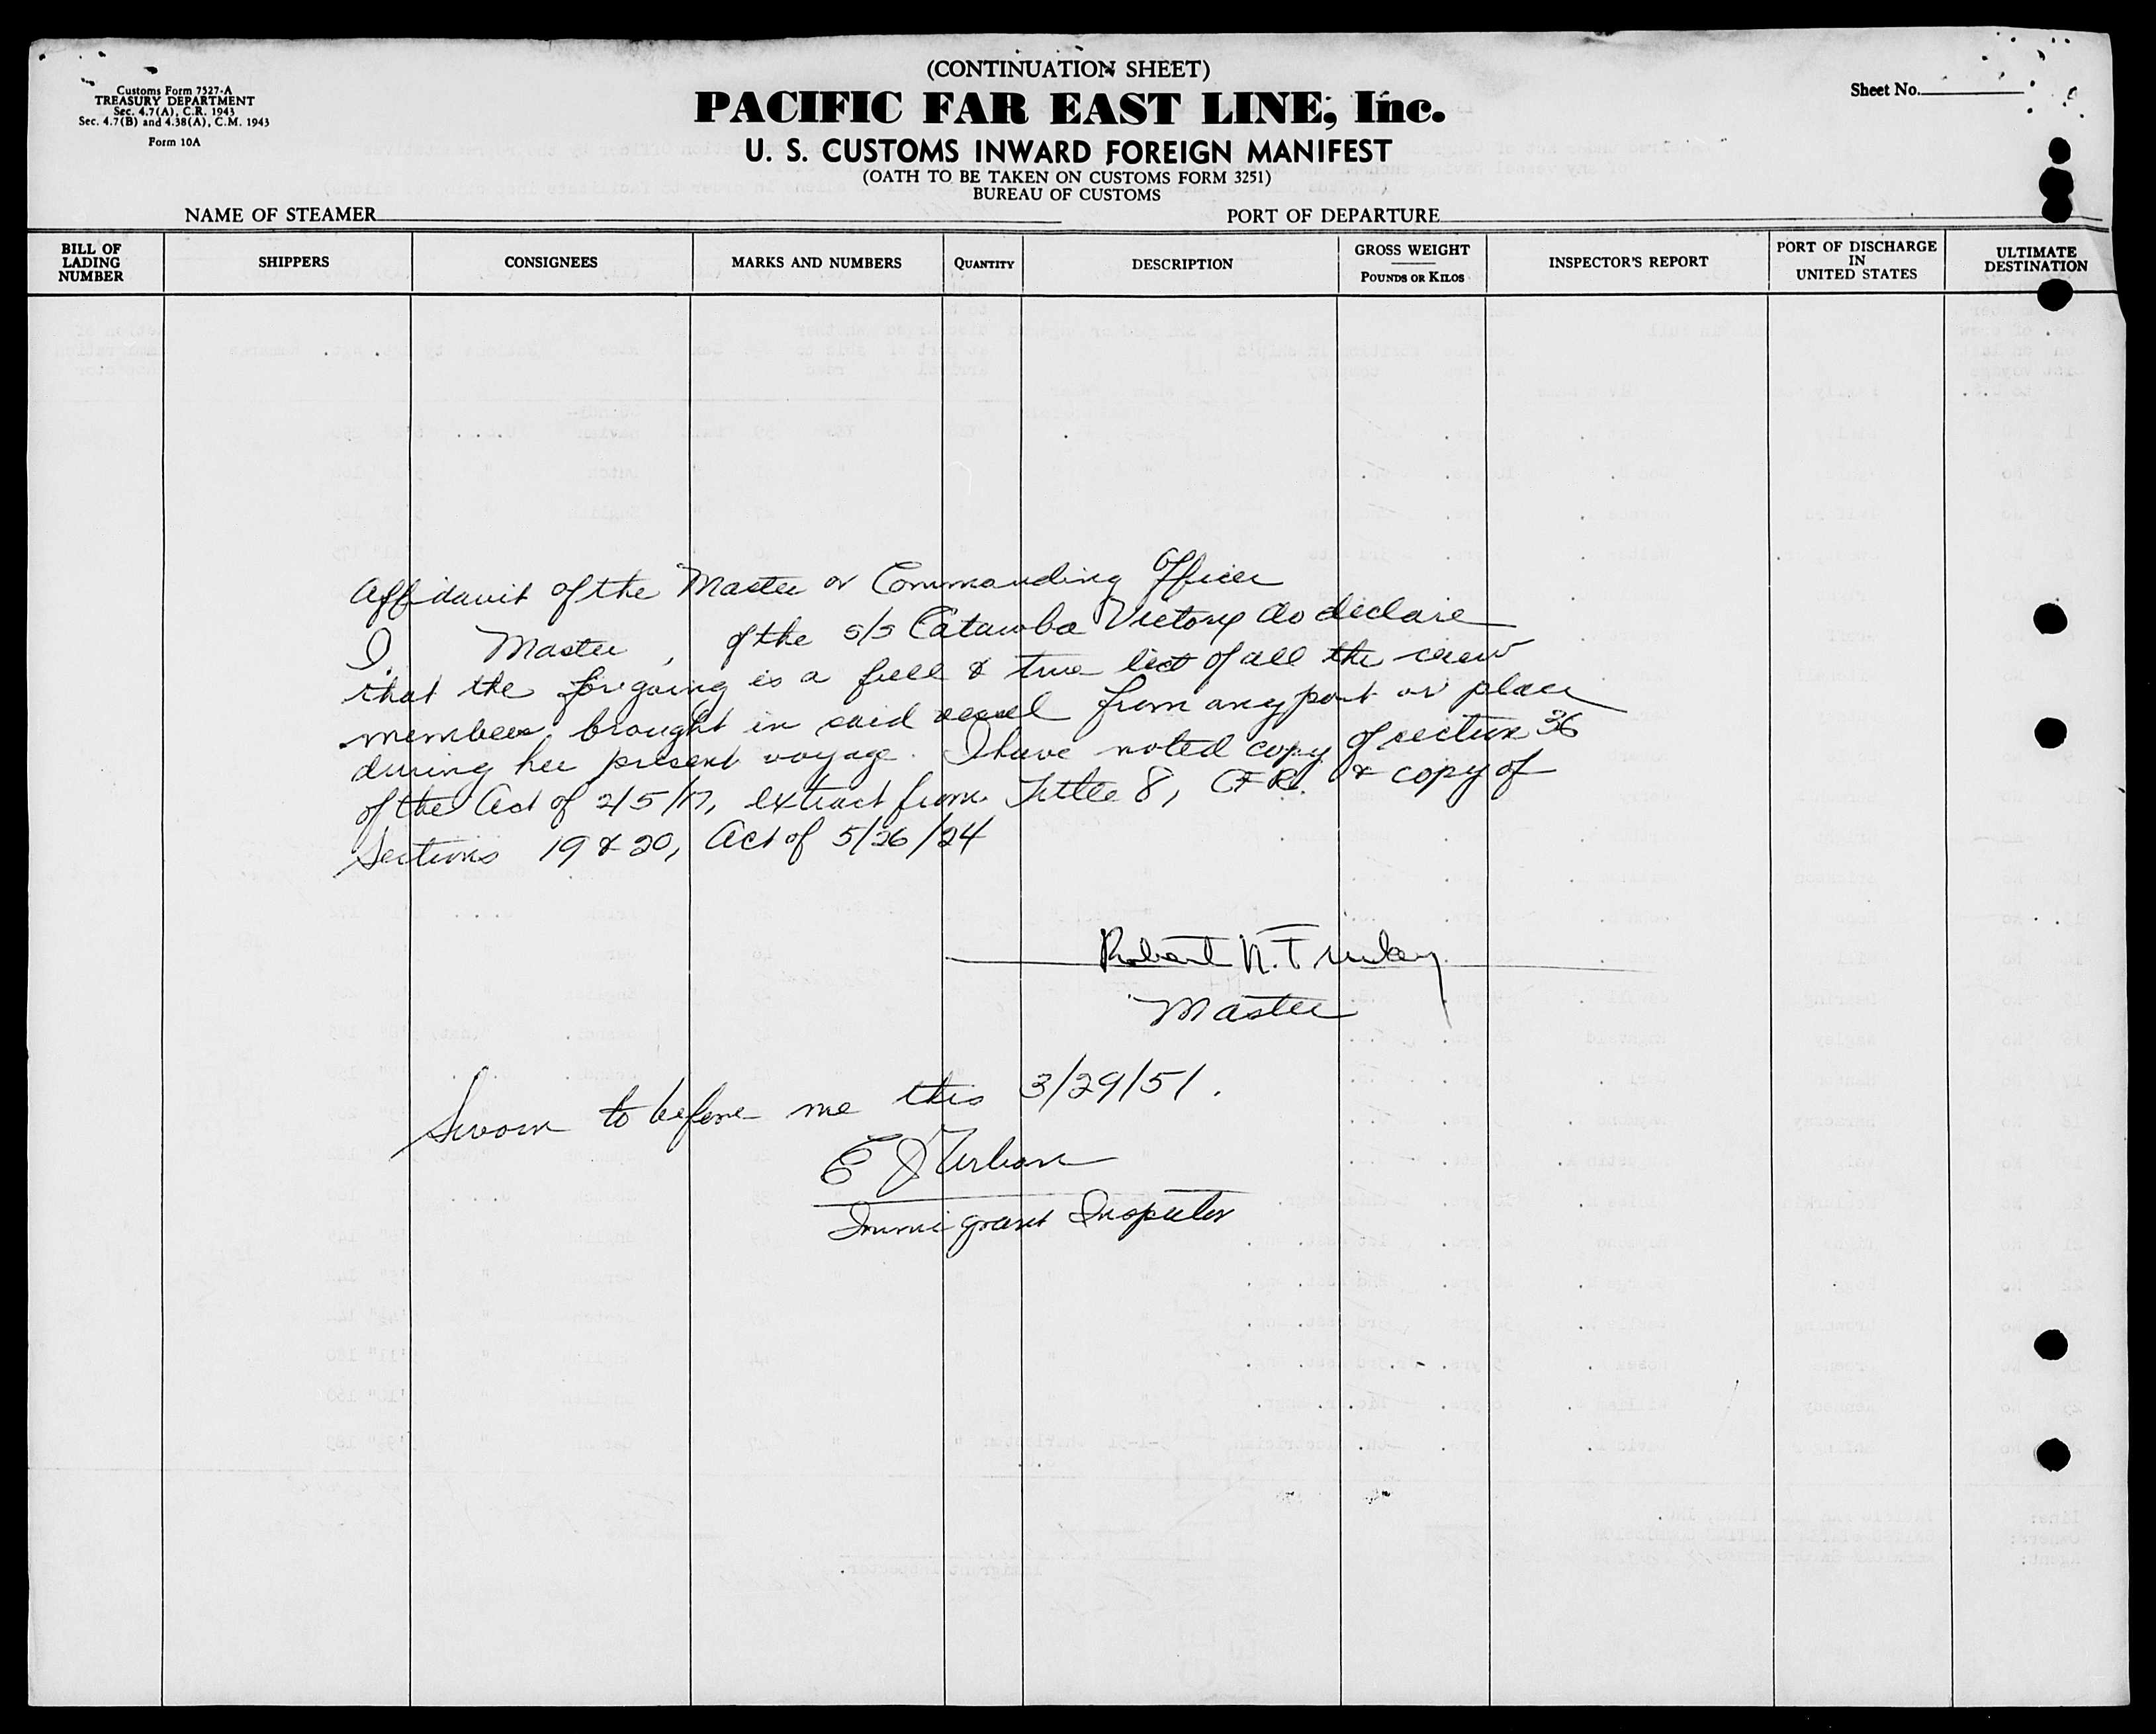 (CONTINUATION SHEET)
PACIFIC FAR EAST LINE, Inc.
U. S. CUSTOMS INWARD FOREIGN MANIFEST
(OATH TO BE TAKEN ON CUSTOMS FORM 3251)
BUREAU OF CUSTOMS
Customs Form 7527-A
TREASURY DEPARTMENT
Sec. 4.7(A), C.R. 1943
Sec. 4.7(B) and 4.38(A), C.M. 1943
Form 10A
Sheet No.
NAME OF STEAMER
PORT OF DEPARTURE
BILL OF LADING NUMBER
SHIPPERS
CONSIGNEES
MARKS AND NUMBERS
QUANTITY
DESCRIPTION
GROSS WEIGHT
POUNDS OR KILOS
INSPECTOR'S REPORT
PORT OF DISCHARGE IN UNITED STATES
ULTIMATE DESTINATION
Affidavit of the Master or Commanding Officer
I, Master, of the s/s Catawba Victory do declare
that the forgoing is a full & true list of all the crew
members brought in said vessel from any port or place
during her present voyage. I have noted copy of section 36
of the Act of 2/5/17, extract from Title 8, CFR. & copy of
Sections 19 & 20, Act of 5/26/24
Robert N.
Master
Sworn to before me this 3/29/51.
E J Urban
Immigrant Inspector